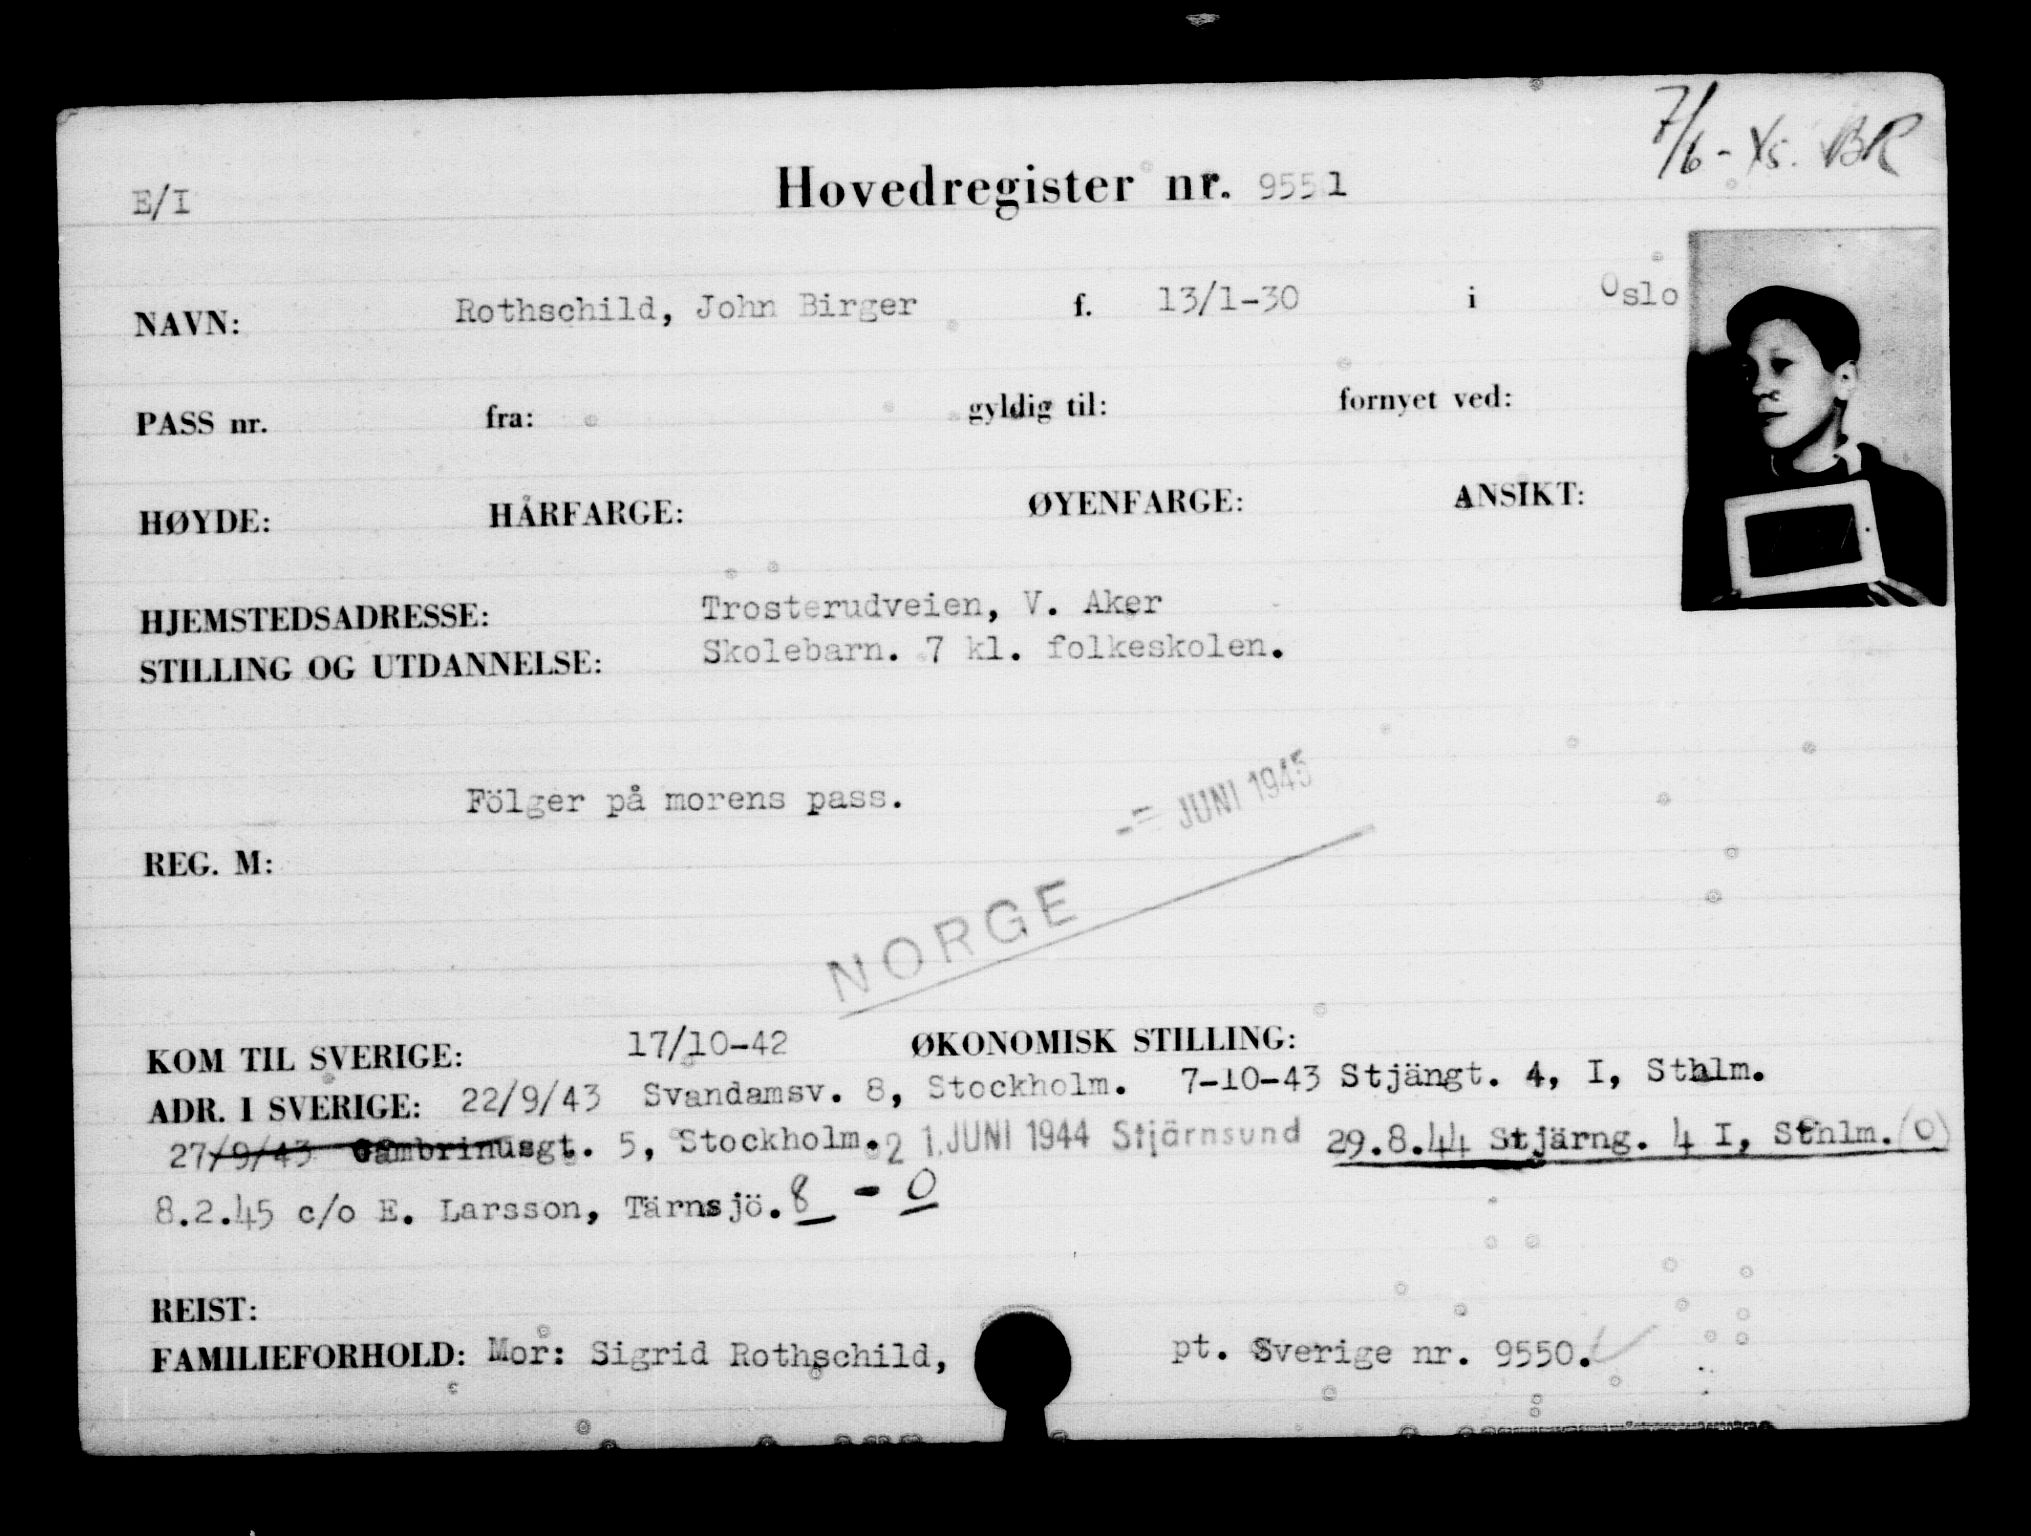 7/6-45. BR
E/I
Hovedregister nr. 9551
NAVN: Rothschild, John Birger f. 13/1-30 i Oslo
PASS nr. fra: gyldig til: fornyet ved:
HØYDE: HÅRFARGE: ØYENFARGE: ANSIKT:
HJEMSTEDSADRESSE: Trosterudveien, V. Aker
STILLING OG UTDANNELSE: Skolebarn. 7 kl. folkeskolen.
Fölger på morens pass.
JUNI 1945
REG. M:
NORGE
KOM TIL SVERIGE: 17/10-42 ØKONOMISK STILLING:
ADR. I SVERIGE: 22/9/43 Svandamsv. 8, Stockholm. 7-10-43 Stjängt. 4, I, Sthlm.
27/9/43 Gambrinusgt. 5, Stockholm. 21. JUNI 1944 Stjärnsund 29.8.44 Stjärng. 4 I, Sthlm. (0)
8.2.45 c/o E. Larsson, Tärnsjö. 8 - 0
REIST:
FAMILIEFORHOLD: Mor: Sigrid Rothschild, pt. Sverige nr. 9550.